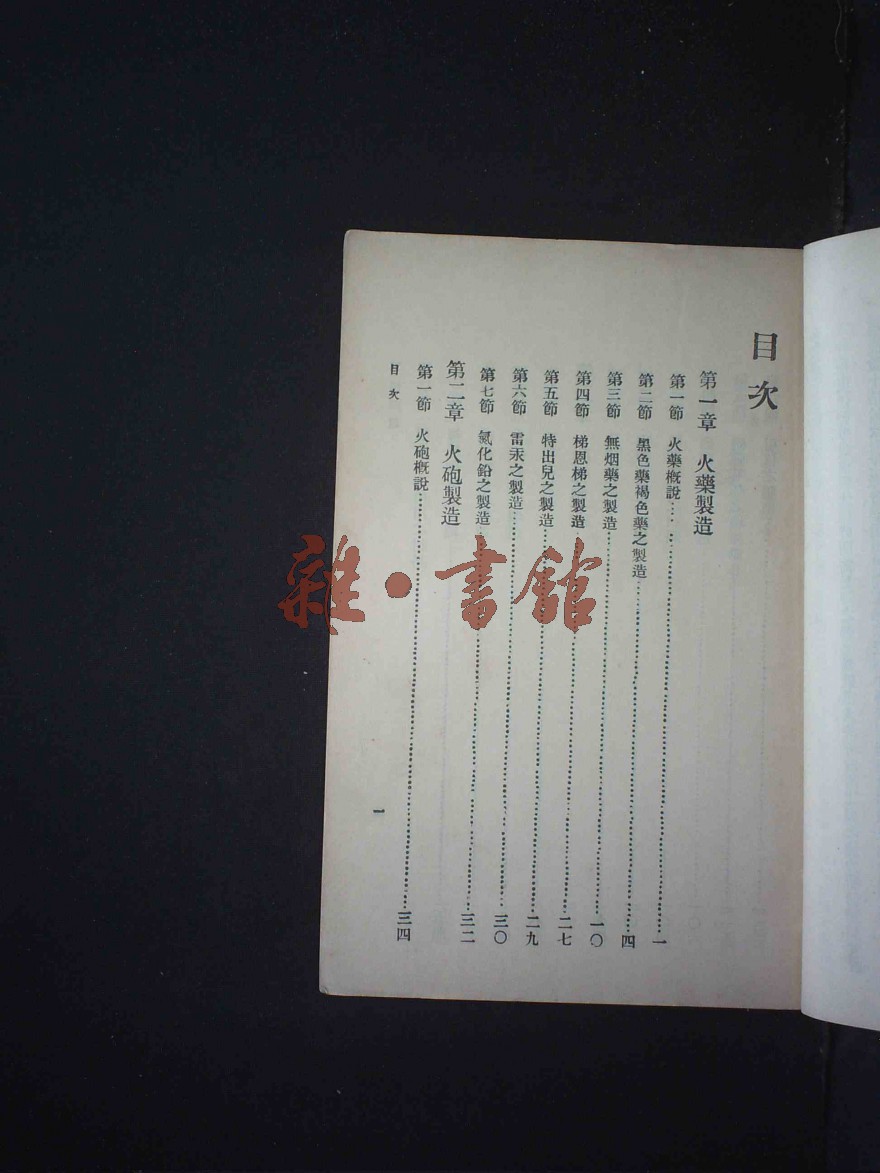 目次
第一章 火藥製造
第一節 火藥概說……一
第二節 黑色藥褐色藥之製造……四
第三節 無烟藥之製造……一〇
第四節 梯恩梯之製造……二七
第五節 特出兒之製造……二九
第六節 雷汞之製造……三〇
第七節 氮化鉛之製造……三二
第二章 火砲製造
第一節 火砲概說……三四
目次
一
雜·書館